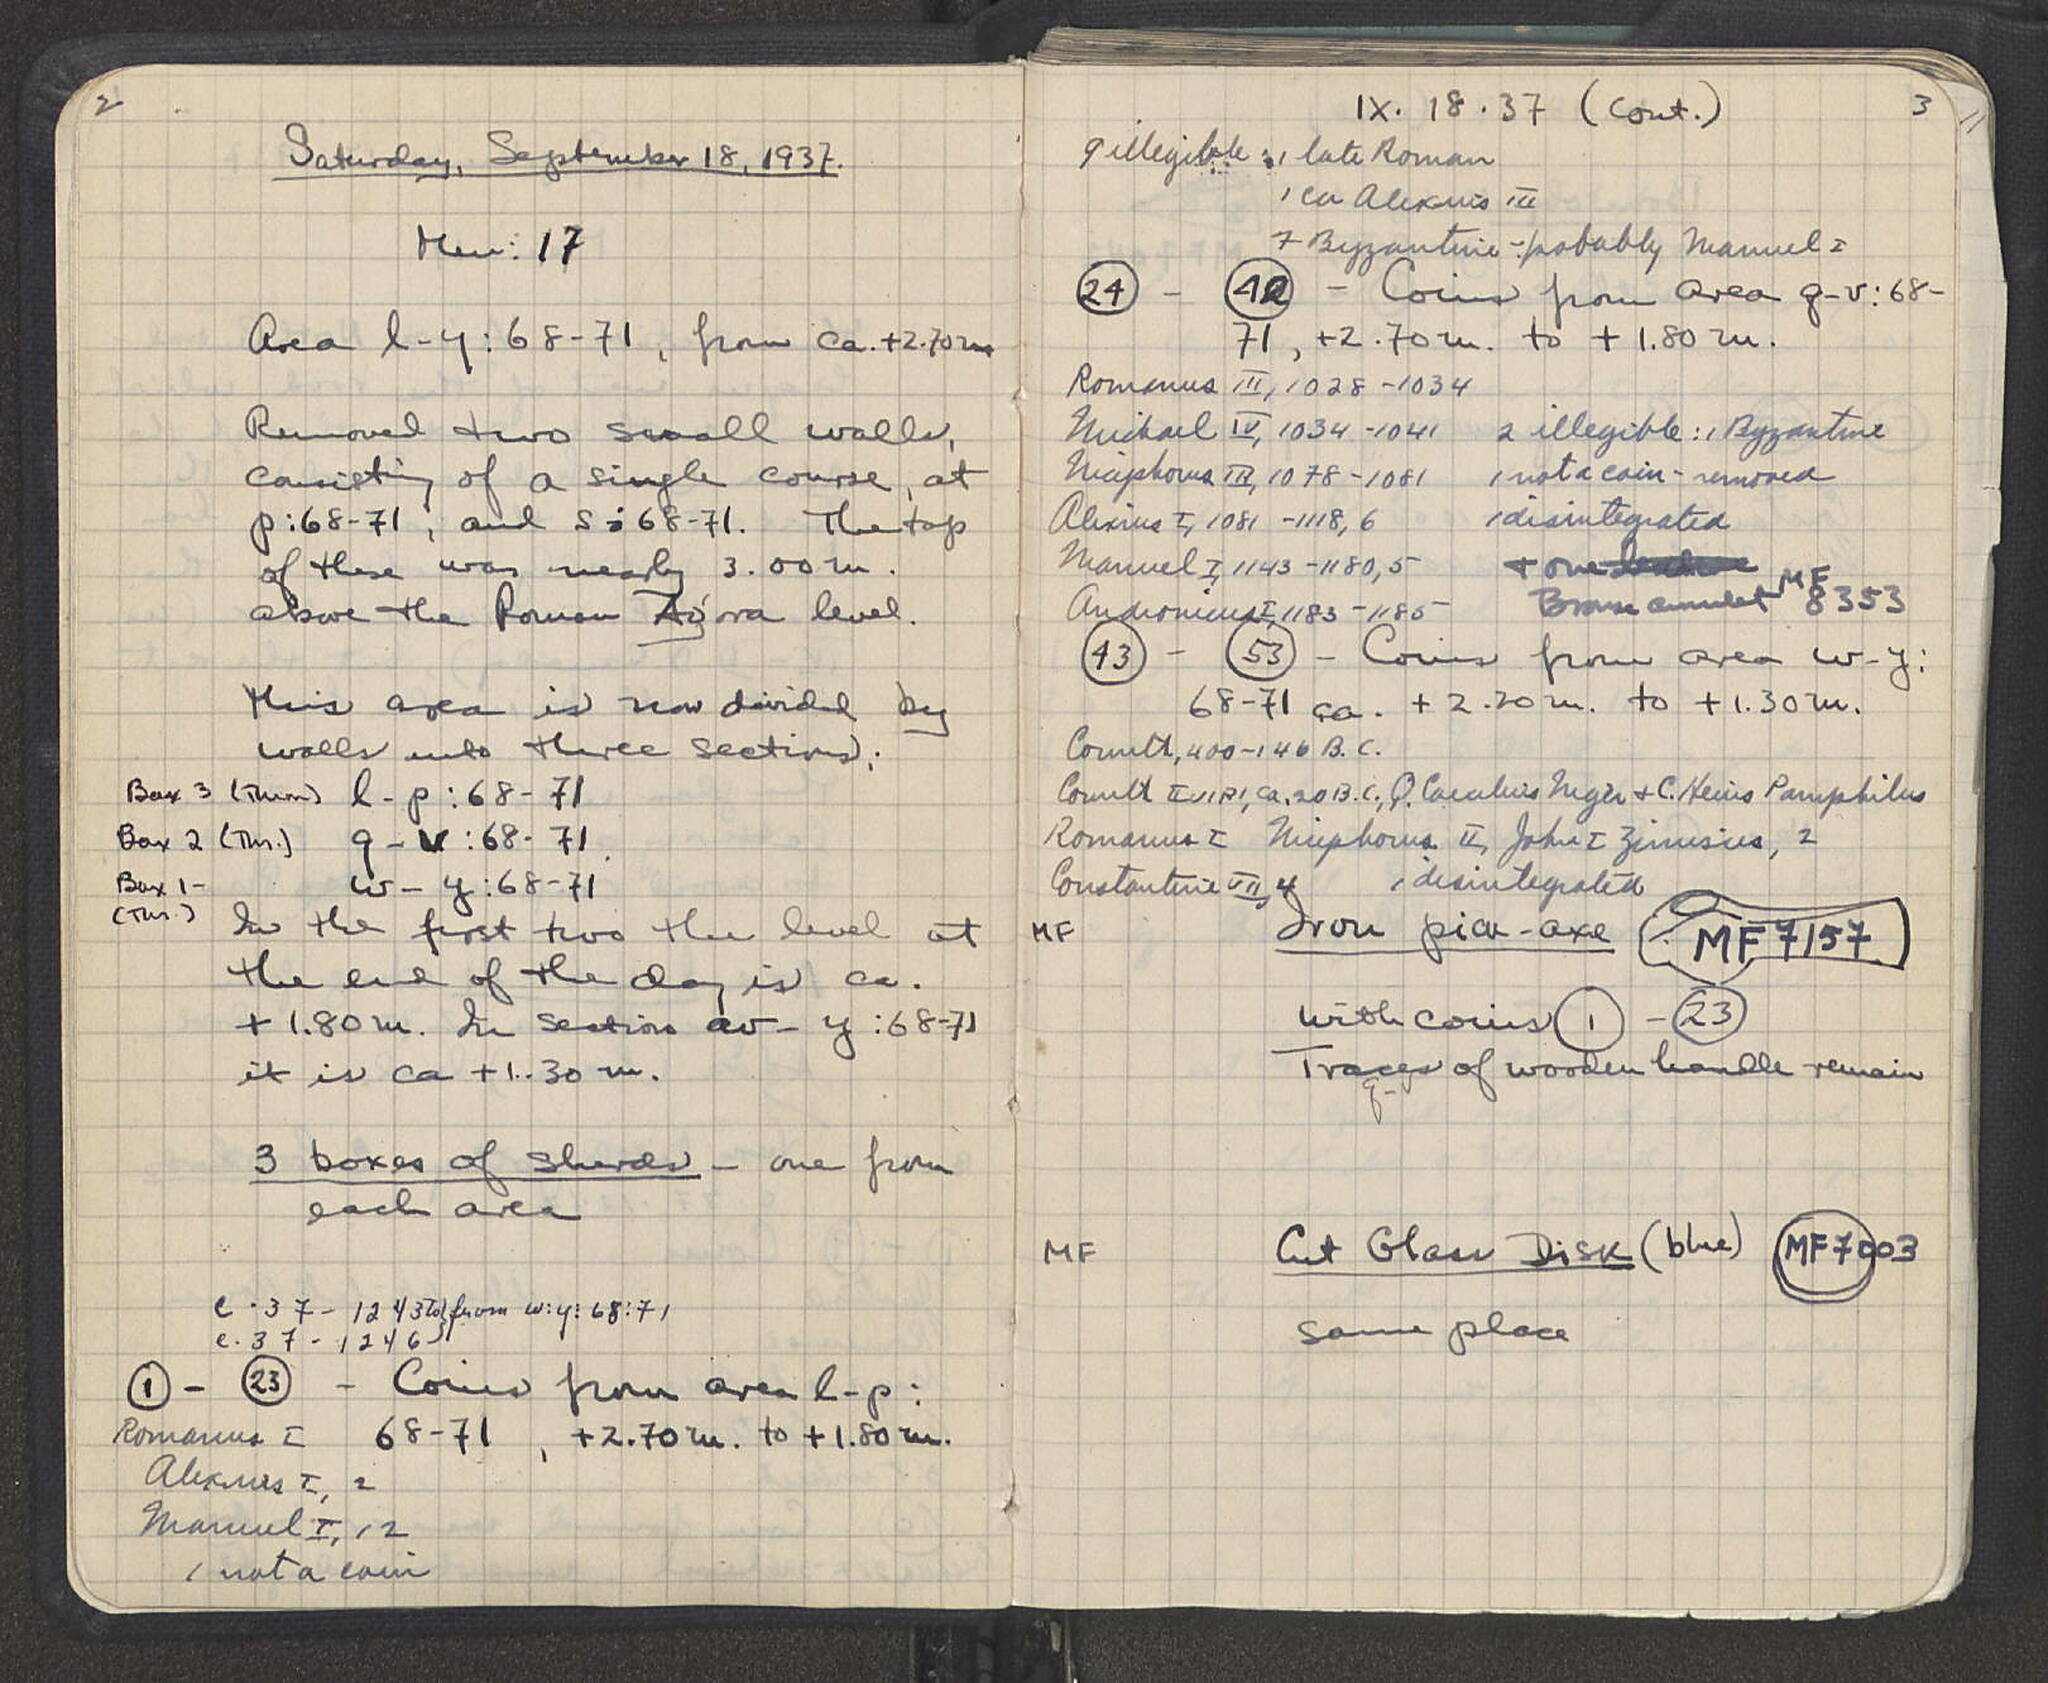 2
Saturday, September 18, 1937.
Men: 17
Area l-y:68-71, from ca.+2.70m
Removed two small walls,
consisting of a single course, at
p:68-71, and s:68-71. The top
of these was nearly 3.00m.
above the Roman Agora level.
This area is now divided by
walls into three sections:
Box 3 (Thurs) l-p:68-71
Box 2 (Thr.) q-v:68-71.
Box 1- w-y:68-71
(Thr.)
In the first two the level at
the end of the day is ca.
+1.80m. In section w-y:68-71
it is ca +1.30m.
3 boxes of sherds - one from
each area
c.37-1243 to} from w:y:68:71
c.37-1246
1 - 23 - Coins from area l-p:
Romanus I 68-71, +2.70m. to +1.80m.
Alexius I, 2
Manuel I, 12
1 not a coin
IX. 18.37 (cont.) 3
9 illegible: 1 late Roman
1 ca Alexius III
7 Byzantine - probably Manuel I
24 - 42 - Coins from area q-v:68-
71, +2.70m. to +1.80m.
Romanus III, 1028-1034
Michael IV, 1034-1041 2 illegible: 1 Byzantine
Nicephorus III, 1078-1081 1 not a coin - removed
Alexius I, 1081-1118, 6 1 disintegrated
Manuel I, 1143-1180, 5 + one
Andronicus I, 1183-1185 Bronze amulet MF 8353
43 - 53 - Coins from area w-y:
68-71 ca. +2.20m. to +1.30m.
Corinth, 400-146 B.C.
Corinth II VIRI, ca. 20 B.C., Q. Caecilius Niger + C. Heius Pamphilus
Romanus I Nicephorus II, John I Zimisces, 2
Constantine VII, 4 1 disintegrated
MF Iron pick-axe MF 7157
with coins 1 - 23
Traces of wooden handle remain
MF Cut Glass Disk (blue) MF 7003
same place